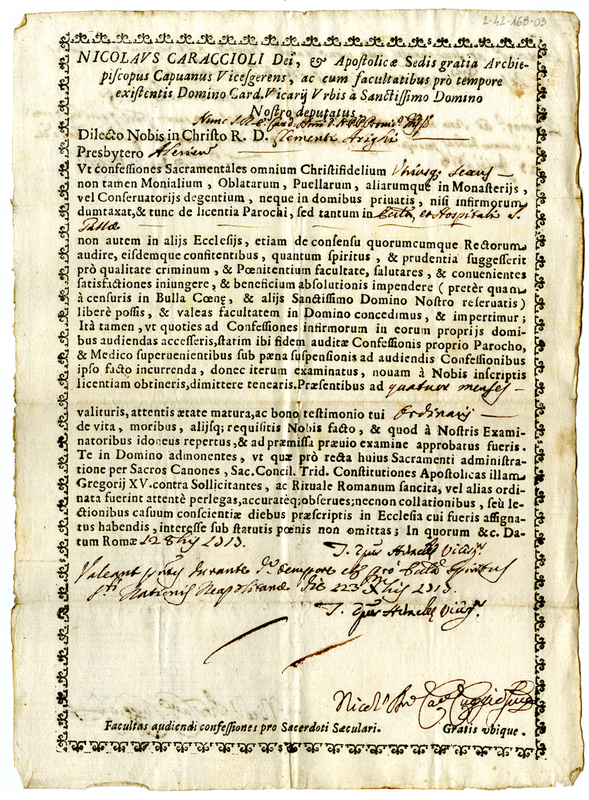 2-42-168-03
NICOLAVS CARACCIOLI Dei, & Apostolicæ Sedis gratia Archie-
piscopus Capuanus Vicesgerens, ac cum facultatibus prò tempore
existentis Domino Card. Vicarij Vrbis à Sanctissimo Domino
Nostro deputatus.
Dilecto Nobis in Christo R. D. Clementi Arighi
Presbytero
Vt confessiones Sacramentales omnium Christifidelium Vtriusq; sexus
non tamen Monialium, Oblatarum, Puellarum, aliarumque in Monasterijs,
vel Conseruatorijs degentium, neque in domibus priuatis, nisi infirmorum
dumtaxat, & tunc de licentia Parochi, sed tantum in et Hospitalis S.
non autem in alijs Ecclesijs, etiam de consensu quorumcumque Rectorum
audire, eisdemque confitentibus, quantum spiritus, & prudentia suggesserit
prò qualitate criminum, & Pœnitentium facultate, salutares, & conuenientes
satisfactiones iniungere, & beneficium absolutionis impendere (preter quam
à censuris in Bulla Cœnę, & alijs Sanctissimo Domino Nostro reseruatis)
liberè possis, & valeas facultatem in Domino concedimus, & impertimur;
Ità tamen, vt quoties ad Confessiones infirmorum in eorum proprijs domi-
bus audiendas accesseris, statim ibi fidem auditæ Confessionis proprio Parocho,
& Medico superuenientibus sub pœna suspensionis ad audiendis Confessionibus
ipso facto incurrenda, donec iterum examinatus, nouam à Nobis inscriptis
licentiam obtineris, dimittere tenearis. Præsentibus ad quatuor menses
valituris, attentis ætate matura, ac bono testimonio tui Ordinarij
de vita, moribus, alijsq; requisitis Nobis facto, & quod à Nostris Exami-
natoribus idoneus repertus, & ad præmissa præuio examine approbatus fueris.
Te in Domino admonentes, vt quæ prò recta huius Sacramenti administra-
tione per Sacros Canones, Sac. Concil. Trid. Constitutiones Apostolicas illam
Gregorij XV. contra Sollicitantes, ac Rituale Romanum sancita, vel alias ordi-
nata fuerint attentè perlegas, accuratèq; obserues; necnon collationibus, seù le-
ctionibus casuum conscientiæ diebus præscriptis in Ecclesia cui fueris assigna-
tus habendis, interesse sub statutis pœnis non omittas; In quorum &c. Da-
tum Romæ
Valeant durante tempore
Nationis Neapolitanæ die
Facultas audiendi confessiones pro Sacerdoti Sæculari. Gratis vbique.